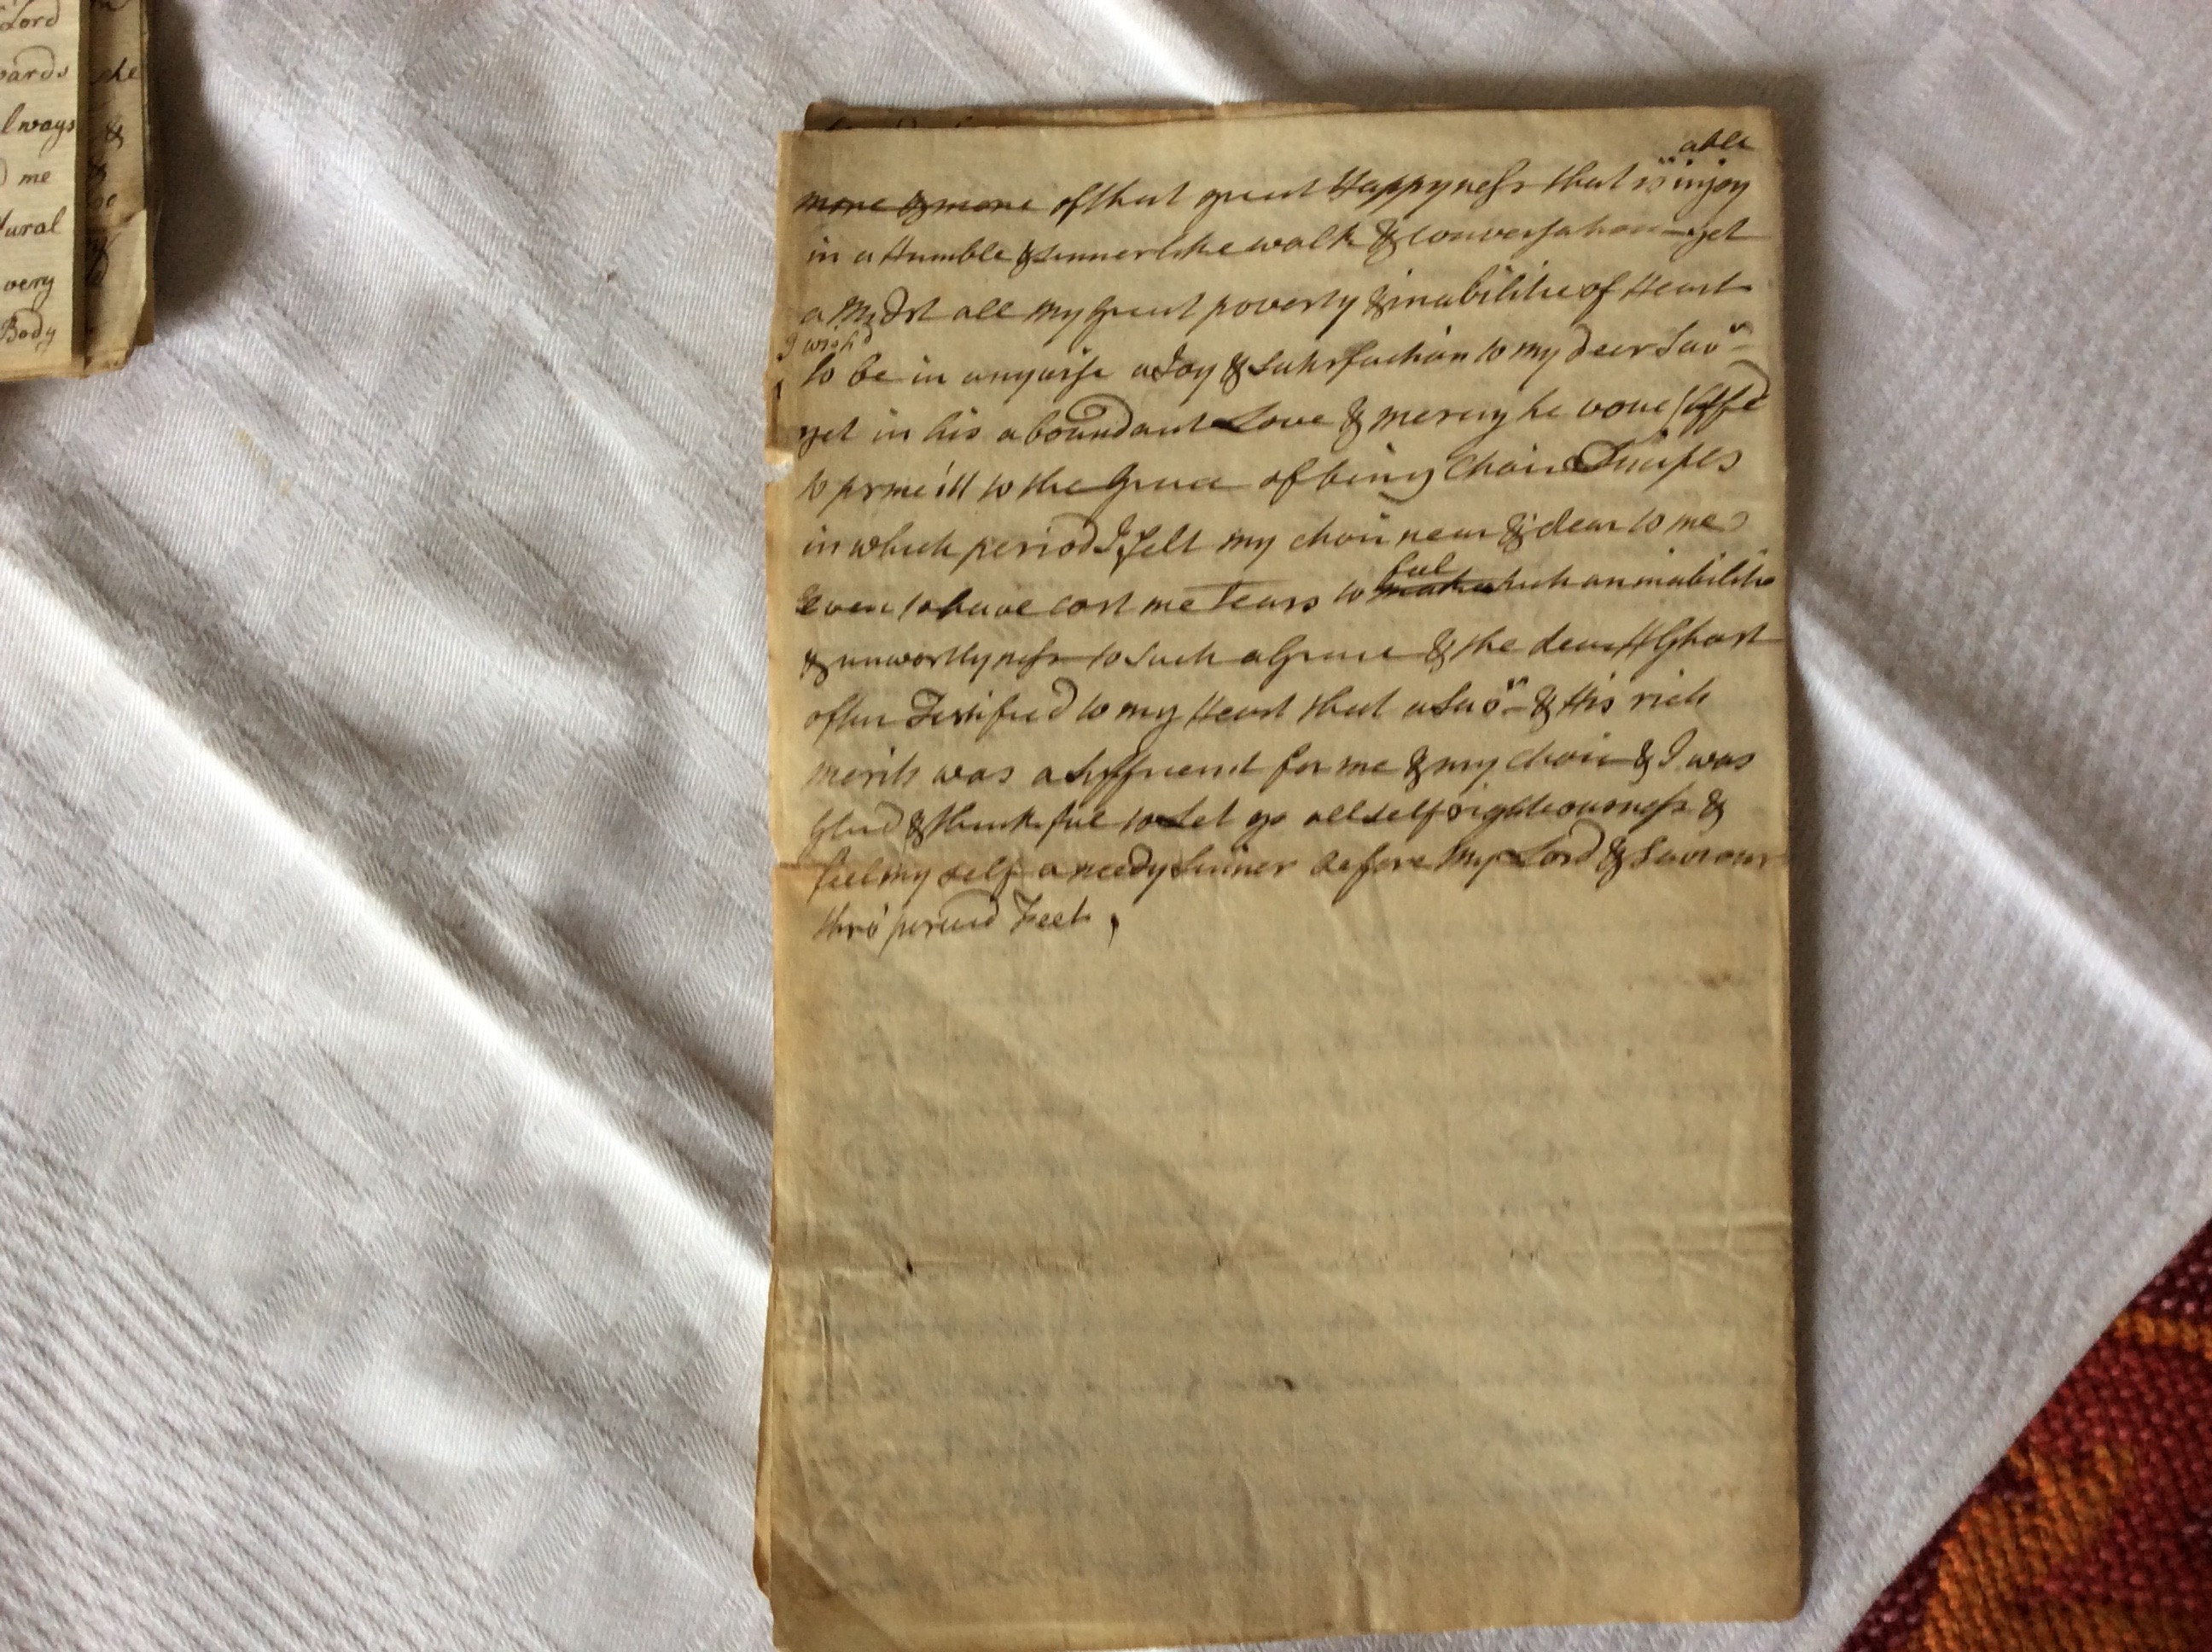 Lord
wards
always
me
tural
very
Body
the
&
&
able
more & more of that great Happyness that is injoy
in a Humble & sinnerlike walk & conversation yet
a Midst all my great poverty & inabilitie of Heart
I wish'd
to be in anywise a Joy & Satisfaction to my dear Savr
yet in his aboundant Love & mercy he
to to the Grace of being Choir
in which period I felt my choir near & dear to me
Even to have cost me Tears to such an inabilitie
feel
& unworthyness to such a Grace & the dear H Ghost
often Testified to my Heart that a Savr & His rich
merits was a suffucient for me & my choir & I was
Glad & thankful to Let go all self righteousness &
feel my self a needy sinner before my Lord & Saviour
thro' percied Feet,